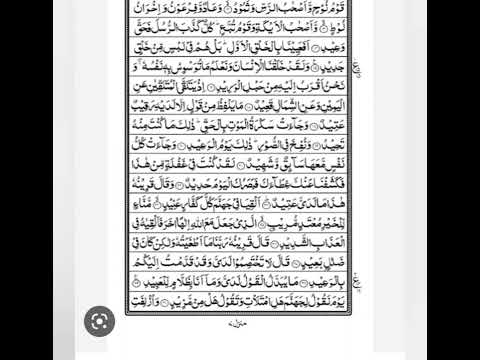 قَوْمُ نُوْحٍ وَّاَصْحٰبُ الرَّسِّ وَثَمُوْدُ ۙ وَعَادٌ وَّفِرْعَوْنُ وَاِخْوَانُ
لُوْطٍ ۙ وَّاَصْحٰبُ الْاَيْكَةِ وَقَوْمُ تُبَّعٍ ؕ كُلٌّ كَذَّبَ الرُّسُلَ فَحَقَّ
وَعِيْدِ ۝ اَفَعَيِيْنَا بِالْخَلْقِ الْاَوَّلِ ؕ بَلْ هُمْ فِيْ لَبْسٍ مِّنْ خَلْقٍ
جَدِيْدٍ ۝ وَلَقَدْ خَلَقْنَا الْاِنْسَانَ وَنَعْلَمُ مَا تُوَسْوِسُ بِهٖ نَفْسُهٗ ۚ وَ
نَحْنُ اَقْرَبُ اِلَيْهِ مِنْ حَبْلِ الْوَرِيْدِ ۝ اِذْ يَتَلَقَّى الْمُتَلَقِّيٰنِ عَنِ
الْيَمِيْنِ وَعَنِ الشِّمَالِ قَعِيْدٌ ۝ مَا يَلْفِظُ مِنْ قَوْلٍ اِلَّا لَدَيْهِ رَقِيْبٌ
عَتِيْدٌ ۝ وَجَآءَتْ سَكْرَةُ الْمَوْتِ بِالْحَقِّ ؕ ذٰلِكَ مَا كُنْتَ مِنْهُ
تَحِيْدُ ۝ وَنُفِخَ فِي الصُّوْرِ ؕ ذٰلِكَ يَوْمُ الْوَعِيْدِ ۝ وَجَآءَتْ كُلُّ
نَفْسٍ مَّعَهَا سَآئِقٌ وَّشَهِيْدٌ ۝ لَقَدْ كُنْتَ فِيْ غَفْلَةٍ مِّنْ هٰذَا
فَكَشَفْنَا عَنْكَ غِطَآءَكَ فَبَصَرُكَ الْيَوْمَ حَدِيْدٌ ۝ وَقَالَ قَرِيْنُهٗ
هٰذَا مَا لَدَيَّ عَتِيْدٌ ۝ اَلْقِيَا فِيْ جَهَنَّمَ كُلَّ كَفَّارٍ عَنِيْدٍ ۝ مَّنَّاعٍ
لِّلْخَيْرِ مُعْتَدٍ مُّرِيْبٍ ۝ الَّذِيْ جَعَلَ مَعَ اللّٰهِ اِلٰهًا اٰخَرَ فَاَلْقِيٰهُ فِي
الْعَذَابِ الشَّدِيْدِ ۝ قَالَ قَرِيْنُهٗ رَبَّنَا مَاۤ اَطْغَيْتُهٗ وَلٰكِنْ كَانَ فِيْ
ضَلٰلٍۭ بَعِيْدٍ ۝ قَالَ لَا تَخْتَصِمُوْا لَدَيَّ وَقَدْ قَدَّمْتُ اِلَيْكُمْ
بِالْوَعِيْدِ ۝ مَا يُبَدَّلُ الْقَوْلُ لَدَيَّ وَمَاۤ اَنَا بِظَلَّامٍ لِّلْعَبِيْدِ ۝
يَوْمَ نَقُوْلُ لِجَهَنَّمَ هَلِ امْتَلَاْتِ وَتَقُوْلُ هَلْ مِنْ مَّزِيْدٍ ۝ وَاُزْلِفَتِ
منزل ٧